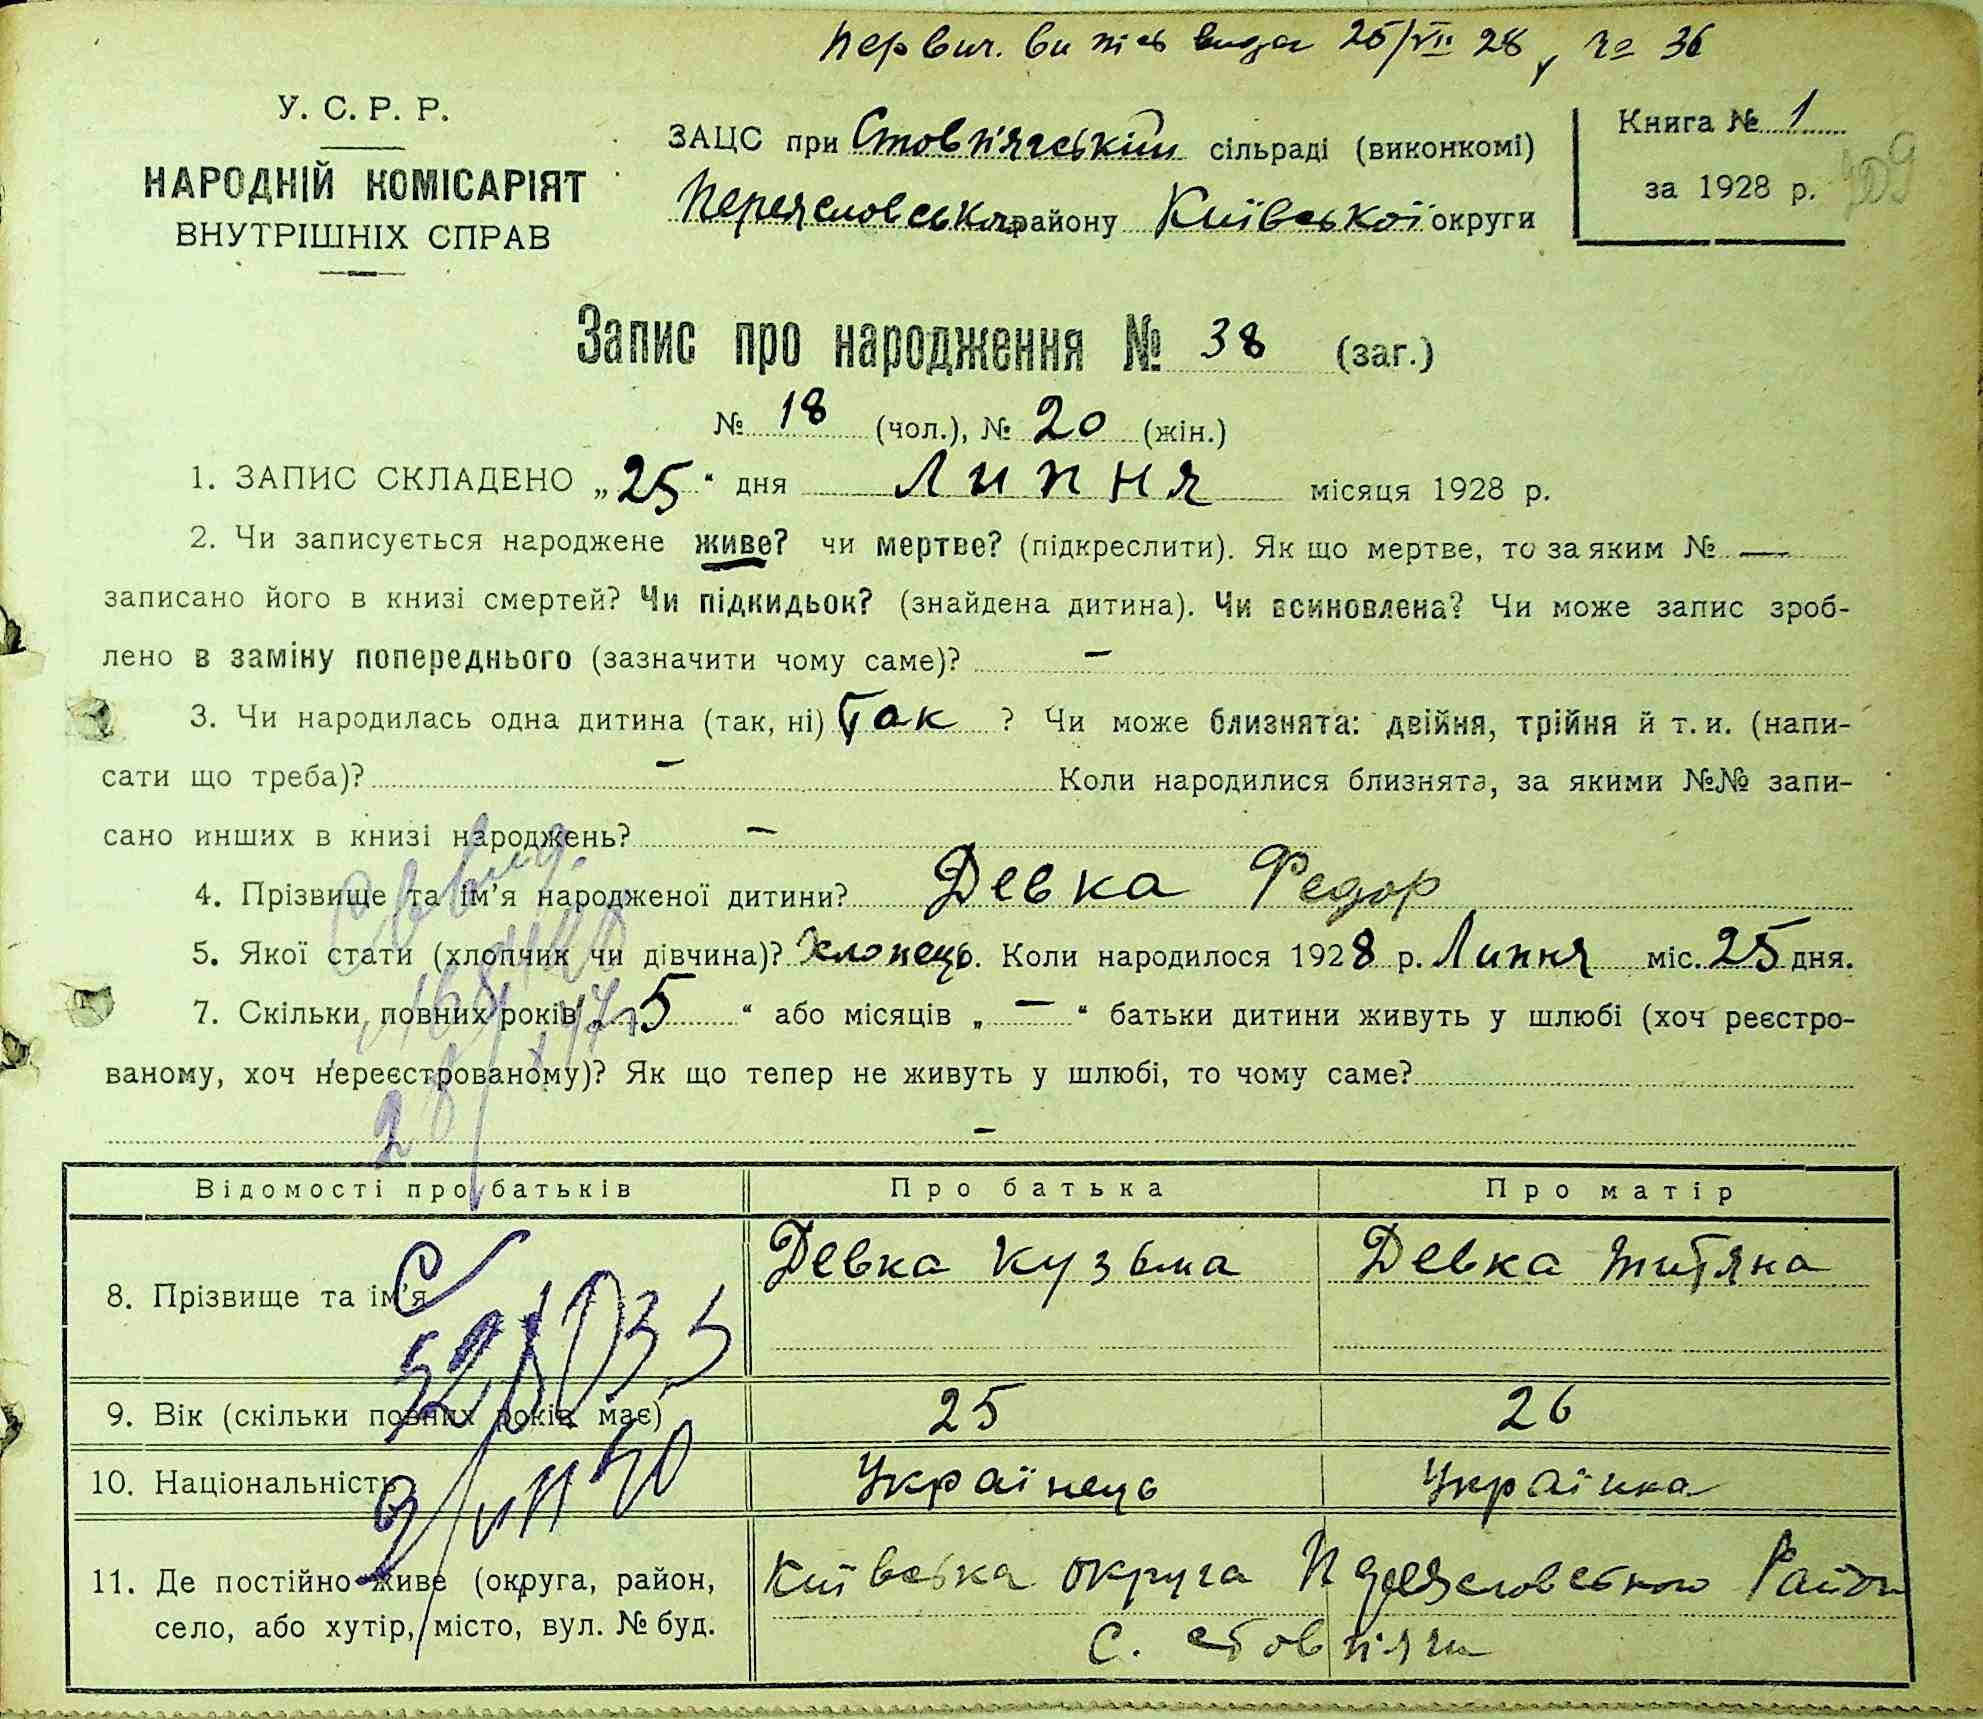 Первич. випись видаа 25/VII 28 р № 36
У. С. Р. Р.
НАРОДНІЙ КОМІСАРІЯТ
ВНУТРІШНІХ СПРАВ
ЗАЦС при Стовп'ягський сільраді (виконкомі)
Переясловського району Київської округи
Книга № 1
за 1928 р.
209
Запис про народження № 38 (заг.)
№ 18 (чол.), № 20 (жін.)
1. ЗАПИС СКЛАДЕНО „25“ дня Липня місяця 1928 р.
2. Чи записується народжене живе? чи мертве? (підкреслити). Як що мертве, то за яким № —
записано його в книзі смертей? Чи підкидьок? (знайдена дитина). Чи всиновлена? Чи може запис зроб-
лено в заміну попереднього (зазначити чому саме)? —
3. Чи народилась одна дитина (так, ні) Так ? Чи може близнята: двійня, трійня й т. и. (напи-
сати що треба)? — Коли народилися близнята, за якими №№ запи-
сано инших в книзі народжень? —
4. Прізвище та ім'я народженої дитини? Девка Федор
5. Якої стати (хлопчик чи дівчина)? Хлопець. Коли народилося 1928 р. Липня міс. 25 дня.
7. Скільки повних років „5“ або місяців „—“ батьки дитини живуть у шлюбі (хоч реєстро-
ваному, хоч нереєстрованому)? Як що тепер не живуть у шлюбі, то чому саме?
—
Відомості про батьків Про батька Про матір
8. Прізвище та ім'я Девка Кузьма Девка Титяна
9. Вік (скільки повних років має) 25 26
10. Національність Українець Українка
11. Де постійно живе (округа, район, Київська округа Переясловського Район
село, або хутір, місто, вул. № буд. с. Стовп'яги